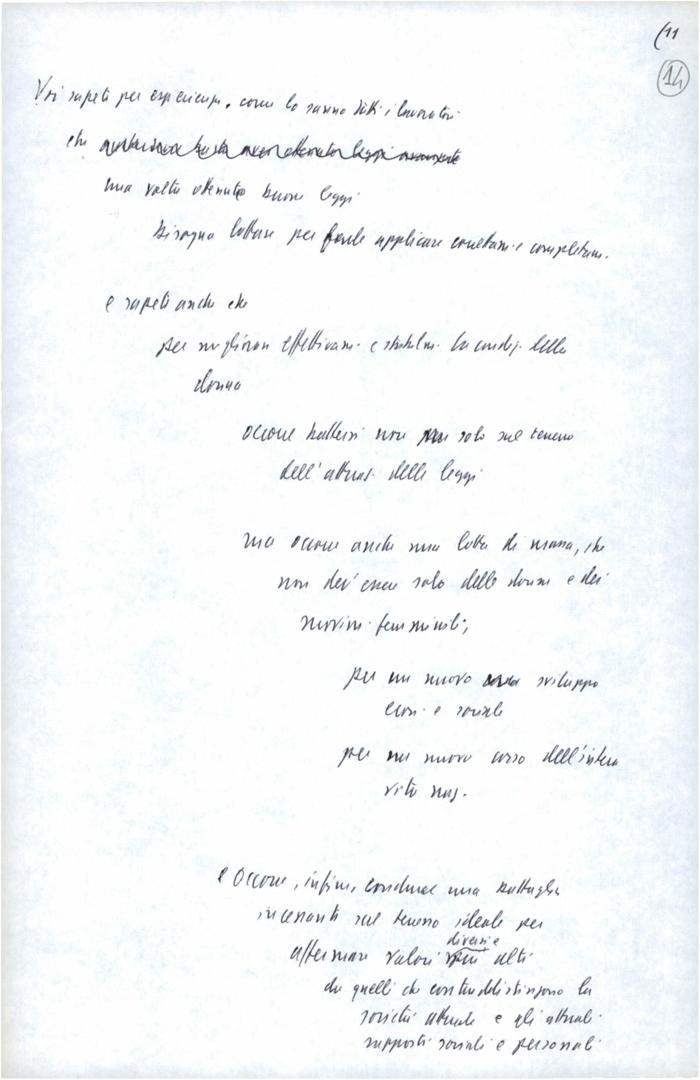 (11
14
Voi sapete per esperienza, come lo sanno tutti i lavoratori
che
una volta ottenute buone leggi
bisogna lottare per farle applicare correttam. e completam.
e sapete anche che
per migliorare effettivam. e stabilm. la condiz. della
donna
occorre battersi non solo sul terreno
dell'attuaz. delle leggi
ma occorre anche una lotta di massa, che
non dev'essere solo delle donne e dei
movim. femminili,
per un nuovo sviluppo
econ. e sociale
per un nuovo corso dell'intera
vita naz.
e occorre, infine, condurre una battaglia
incessante sul terreno ideale per
diversi e
affermare valori più alti
da quelli che contraddistinguono la
società attuale e gli attuali
rapporti sociali e personali